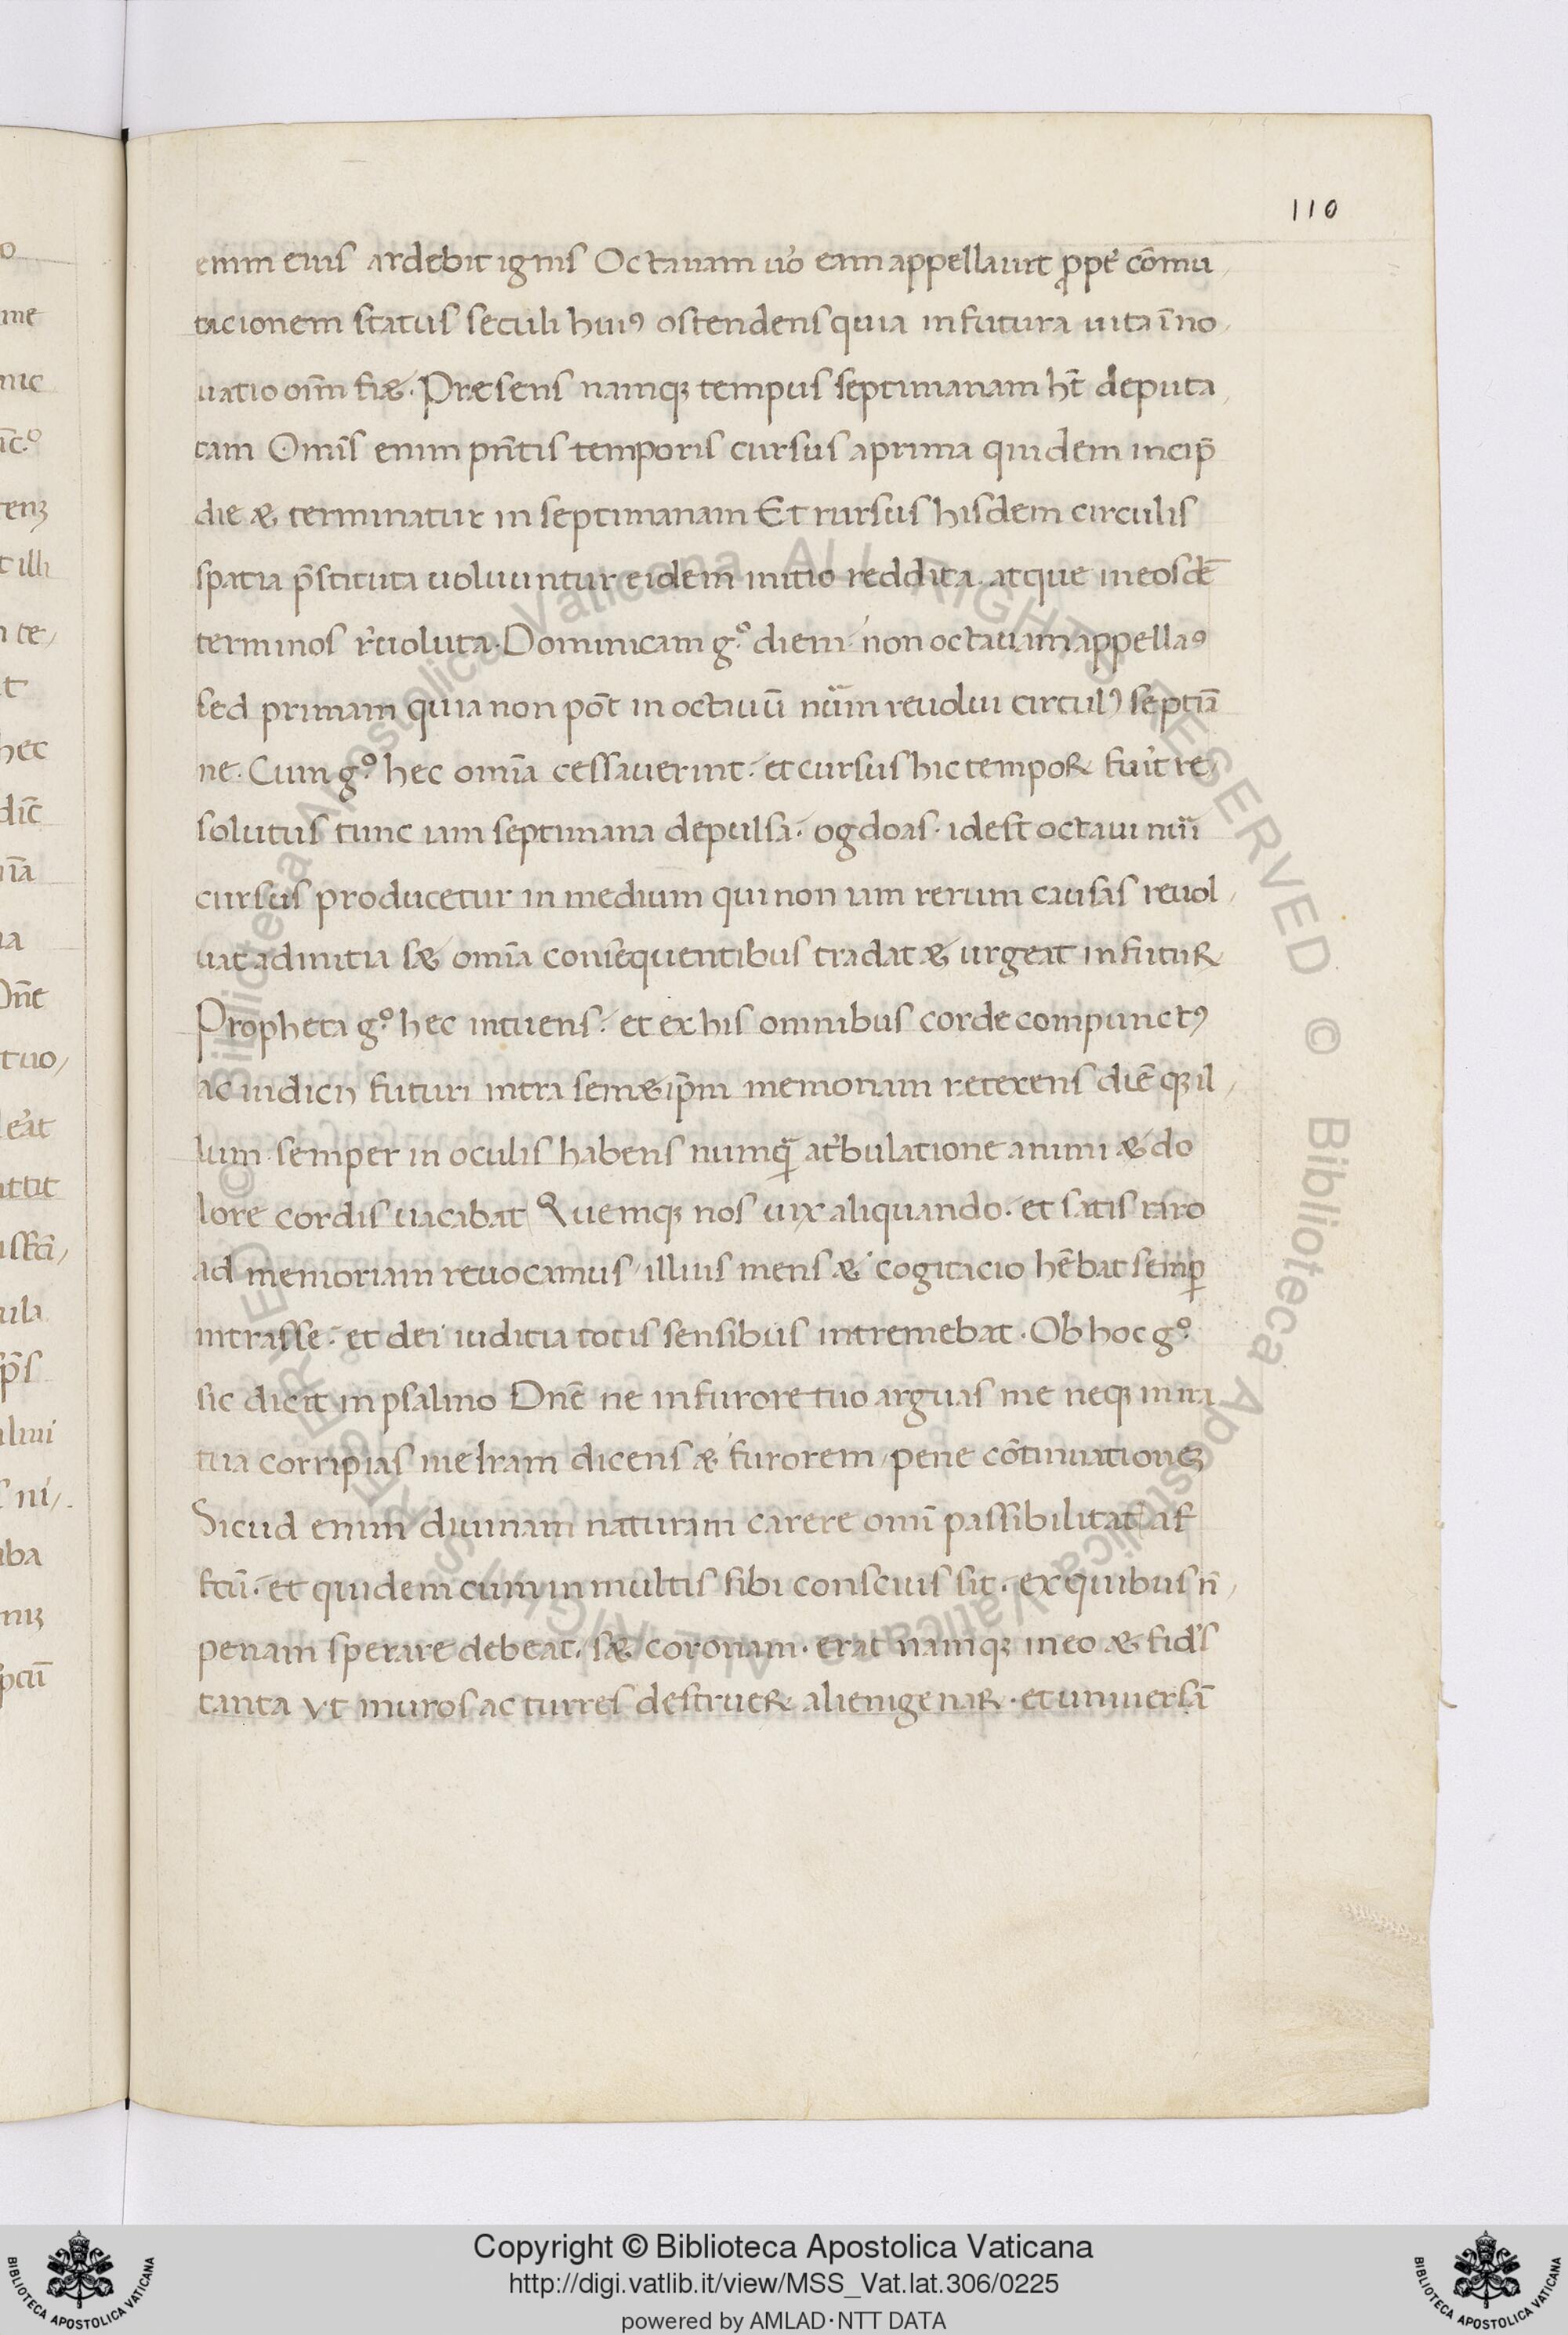 110
enim eius ardebit ignis Octauam u̓o eam appellauit ꝓpt̓ cōmu
tacionem status seculi huiꝰ ostendens quia in futura uita īno
uatio oīm fiæ. Præsens namqꝫ tempus septimanam ht̄ deputa
tam Omīs enim pn̄tis temporis cursus a prima quidem incip̄
die & terminatur in septimanam Et rursus hisdem circulis
spatia p̄stituta uoluuntur eidem initio reddita. atque in eosdē
terminos r̓uoluta. Dominicam g̊ diem non octauam appellaꝰ
sed primam quia non pōt in octauū nūm reuolui circulꝰ septīa
ne. Cum g̊ hec omīa cessauerint. et cursus hic tempoꝝ fuit̓ re
solutus tunc iam septimana depulsa. ogdoas. idest octaui nūi
cursus producetur in medium qui non iam rerum causas reuol
uat ad initia s& omīa consequentibus tradat & urgeat in futuꝝ
Propheta g̊ hec intuens. et ex his omnibus corde compunctꝰ
ac iudicij futuri intra semetip̄m memoriam retexens diē qꝫ il
lum semper in oculis habens numqᷓ a tͥbulatione animi & do
lore cordis uacabat Quemqꝫ nos uix aliquando. et satis raro
ad memoriam reuocamus illius mens & cogitacio hēbat semꝑ
intra sse. et dei iuditia totis sensibus intremebat. Ob hoc g̊
sic dicit in psalmo Dnē ne in furore tuo arguas me neqꝫ in ira
tua corripias me Iram dicens & furorem pene cōtinuationeꝫ
Sicud enim diuinam naturam carere omī passibilitat̓ af
fctū. et quidem cum in multis sibi conscius sit. ex quibus n̄
penam sperare debeat. s& coronam. erat namqꝫ in eo & fid̓s
tanta vt muros ac turres destrueꝝ alienigenaꝝ. et uniuersā
Copyright © Biblioteca Apostolica Vaticana
http://digi.vatlib.it/view/MSS_Vat.lat.306/0225
powered by AMLAD·NTT DATA